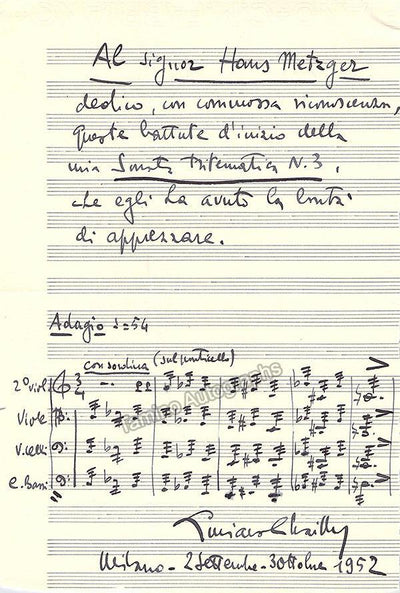 Al signor Hans Metzger
dedico, con commossa riconoscenza,
queste battute d'inizio della
mia Sonata tritematica N.3,
che egli ha avuto la bontà
di apprezzare.
Adagio ♩=54
con sordina (sul ponticello)
2º viol.
Viole
V.celli
e Bassi
Tamino Autographs
Luciano Chailly
Milano - 2 Settembre - 3 Ottobre 1952